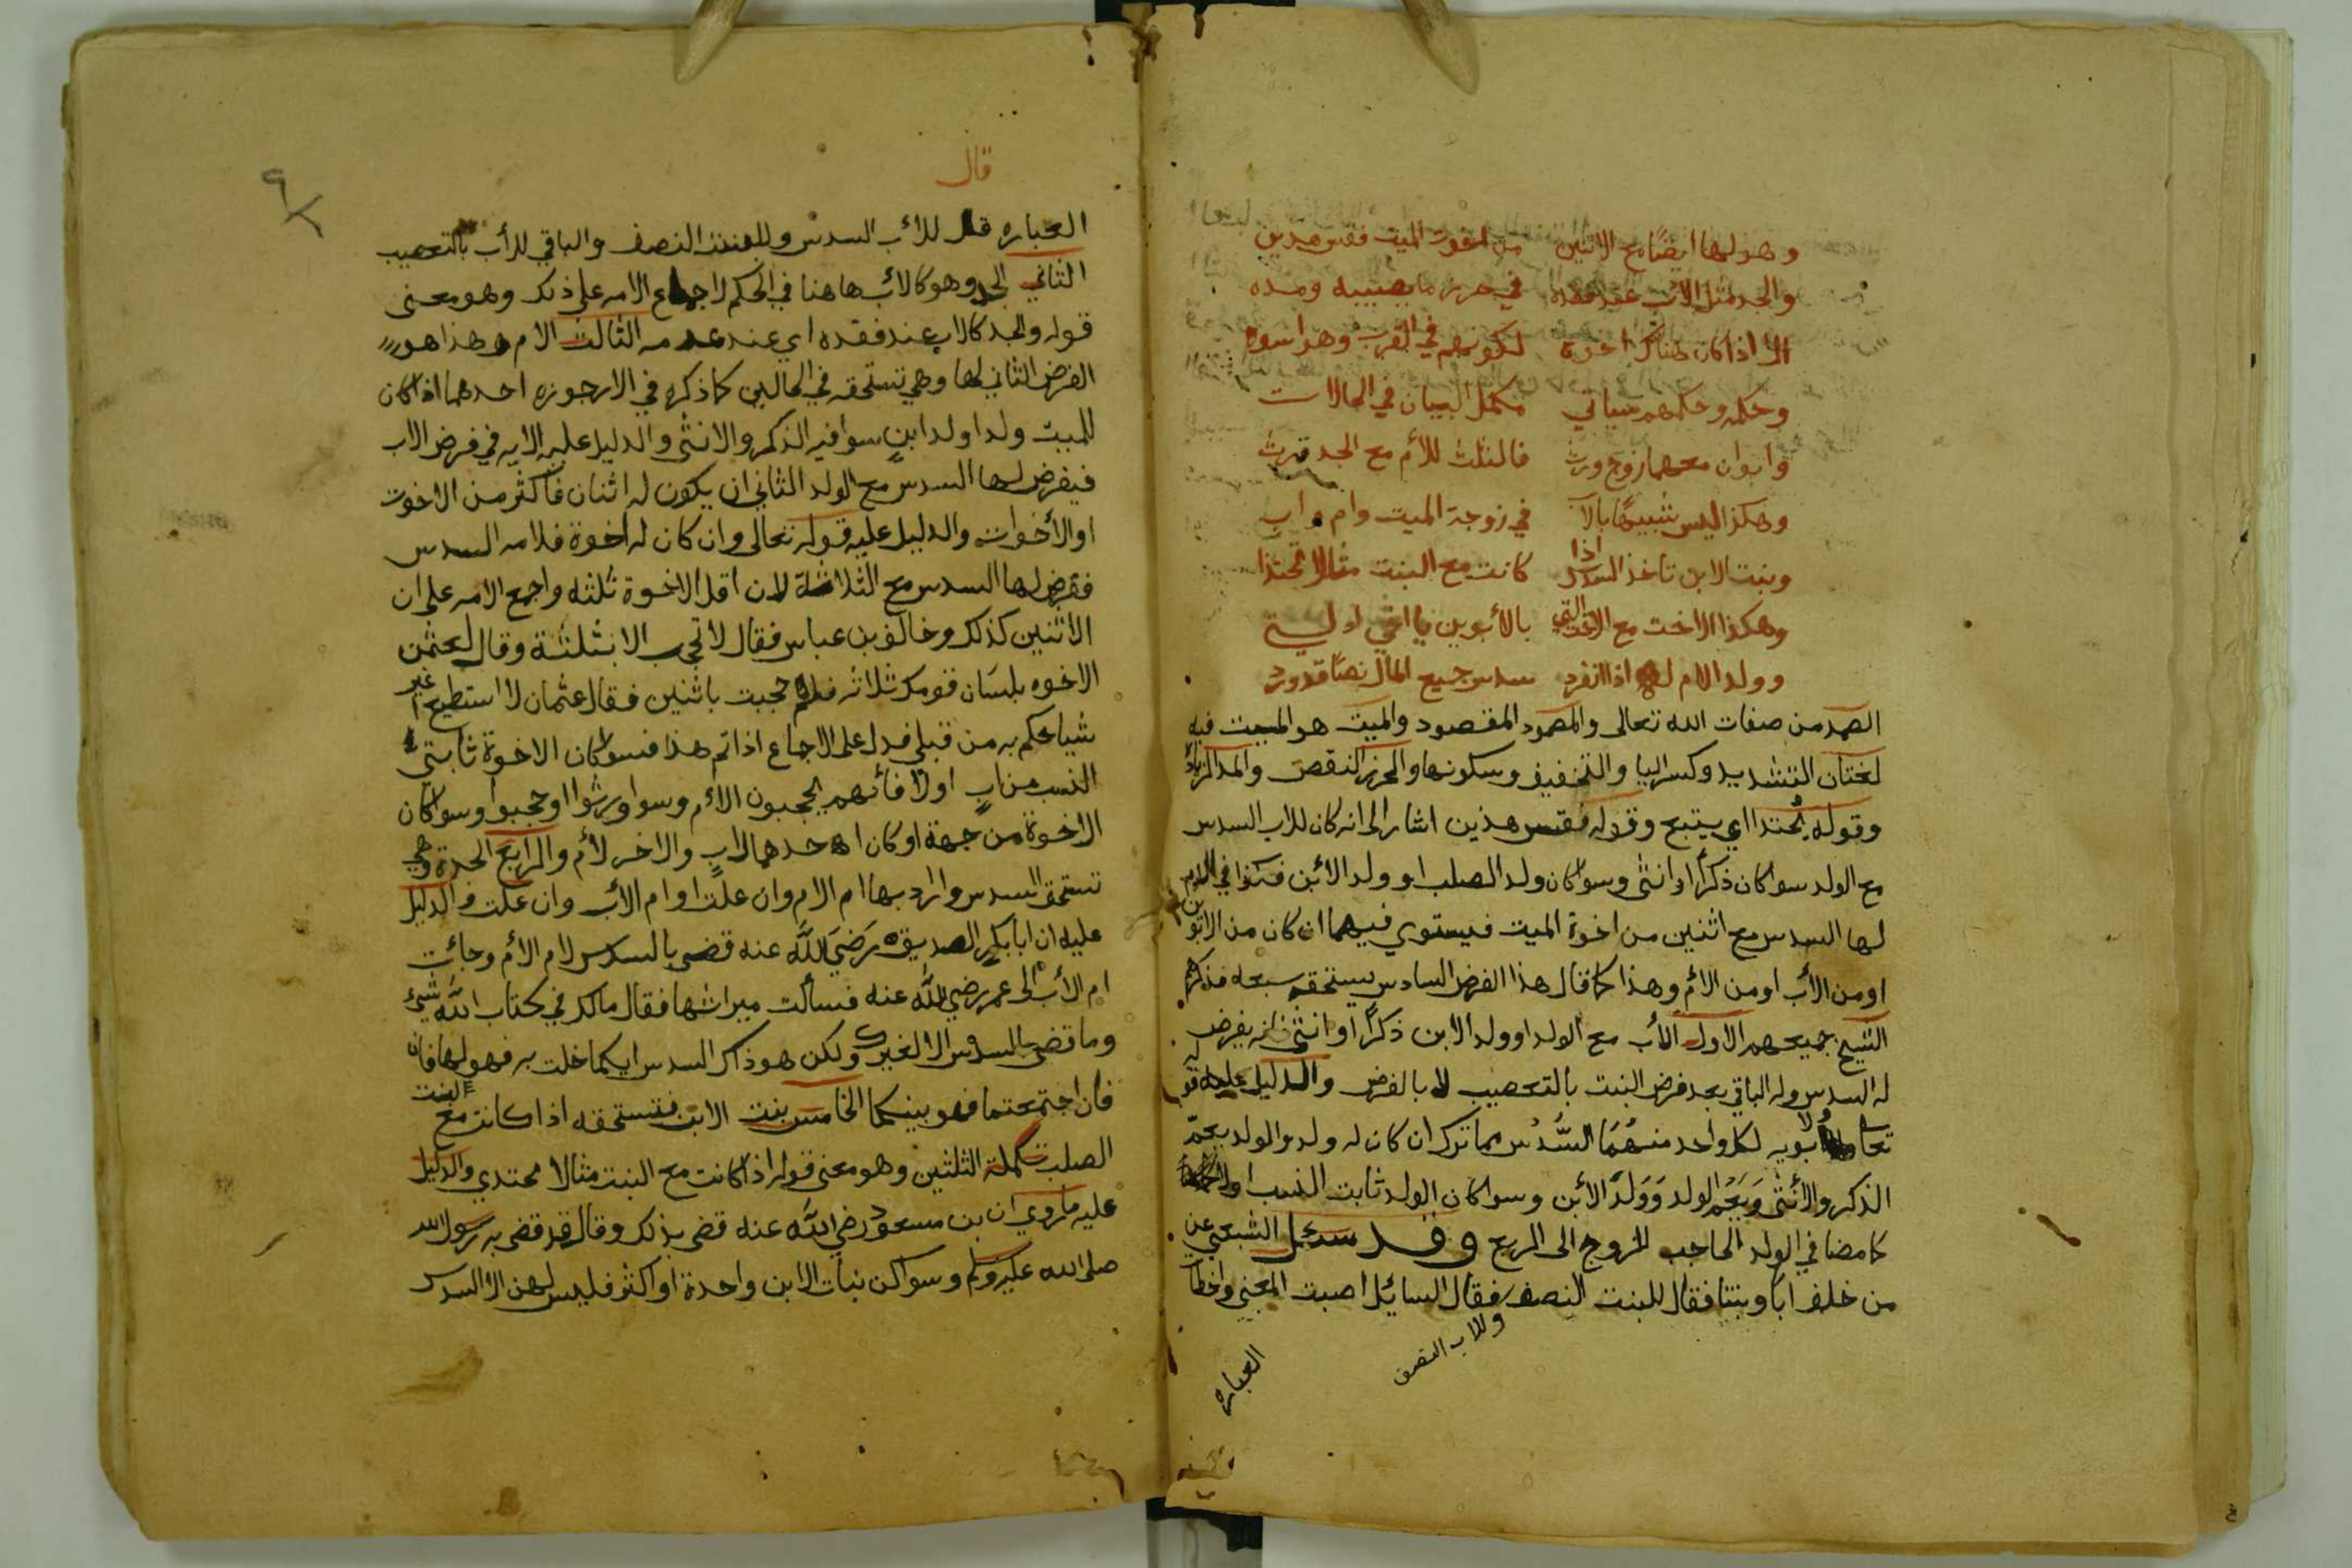 وهو لها ايضًا مع الاثنين من اخوت الميت فقس هذين
والجد مثل الأب عند فقده في حرز ما يصيبه ومده
الا اذا كان هناك اخوه لكونهم في القرب وهو اسوه
وحكمه وحكمهم سياتي مكمل البيان في الحالات
وابوان معهما زوج ورث فالثلث للأم مع الجد ترث
وهكذا ليس شبيهًا بالاب في زوجة الميت وام واب
وبنت الابن تاخذ السدس اذا كانت مع البنت مثالا يحتذا
وهكذا الاخت مع الاخت التي بالأبوين يا اخي ادلت
وولد الام له اذا انفرد سدس جميع المال نصًا قد ورد
الصمد من صفات الله تعالى والمصمود المقصود والميت هو الميت فيه
لغتان التشديد وكسر اليا والتخفيف وسكونها والحرز النقص والمد الزيادة
وقوله يُحتذا اي يتبع وقوله فقس هذين اشار الى انه كان للاب السدس
مع الولد سوا كان ذكرًا او انثى وسوا كان ولد الصلب او ولد الابن فكذا في الام
لها السدس مع اثنين من اخوة الميت فيستوي فيهما ان كان من الابوين
او من الأب او من الأم وهذا كما قال هذا الفرض السادس يستحقه سبعه فذكرهم
الشيخ جميعهم الاول الأب مع الولد او ولد الابن ذكرًا او انثى فانه يفرض
له السدس وله الباقي بعد فرض البنت بالتعصيب لا بالفرض والدليل عليه قوله
تعالى ولأبويه لكل واحد منهُمَا السُّدُس مما ترك ان كان له ولد والولد يعمّ
الذكر والأنثى وَيَعُم الولد وَوَلدَ الأبن وسوا كان الولد ثابت النسب او
كما مضا في الولد الحاجب للزوج الى الربع وقد سئل الشعبي عن
من خلف ابا وبنتا فقال للبنت النصف وللاب النصف فقال السائل اصبت المعنى واخطأت
العباره
قال
العباره قل للأب السدس وللبنت النصف والباقي للأب بالتعصيب
الثاني الجد وهو كالأب هاهنا في الحكم لاجماع الامه على ذلك وهو معنى
قوله والجد كالاب عند فقده اي عند عدمه الثالث الام وهذا هو
الفرض الثاني لها وهي تستحقه في الحالين كما ذكره في الارجوزه احدهما اذا كان
للميت ولد او ولد ابنٍ سوا فيه الذكر والانثى والدليل عليه الايه في فرض الاب
فيفرض لها السدس مع الولد الثاني ان يكون له اثنان فأكثر من الاخوت
او الأخوات والدليل عليه قوله تعالى وان كان له اخوة فلامه السدس
ففرض لها السدس مع الثلاثة لان اقل الاخوة ثلثه واجمع الامه على ان
الأثنين كذلك وخالف بن عباس فقال لا تحجب الا بثلثة وقال لعثمن
الاخوه بلسَان قومك ثلاثه فلم حجبت باثنين فقال عثمان لا استطيع اغير
شيا حكم به من قبلي فدل على الاجماع اذا تم هذا فسوا كان الاخوة ثابتي
النسب من ابٍ او لا فأنهم يحجبون الأم وسوا ورثوا او حجبوا وسوا كان
الاخوة من جهة او كان احدهما لابٍ والاخر لأم والرابع الجدة وهي
تستحق السدس واراد بها ام الام وان علت او ام الأب وان علت والدليل
عليه ان ابا بكر الصديق رَضيَ اللَّه عنه قضى بالسدس لام الأم وجائت
ام الأب الى عمر رضي اللَّه عنه فسألت ميراثها فقال مالك في كتاب اللَّه شيء
وما قضى بالسدس الا لغيرك ولكن هو ذاك السدس ايكما خلت به فهو لها فان
فان اجتمعتما فهو بينكما الخامس بنت الابن فتستحقه اذا كانت مع البنت
الصلب تكملة الثلثين وهو معنى قوله اذا كانت مع البنت مثالا محتدي والدليل
عليه ما روي ان بن مسعود رضي اللَّه عنه قضى بذلك وقال قد قضى به رسول الله
صلى الله عليه وسلم وسوا كن بنات الابن واحدة او اكثر فليس لهن الا السدس